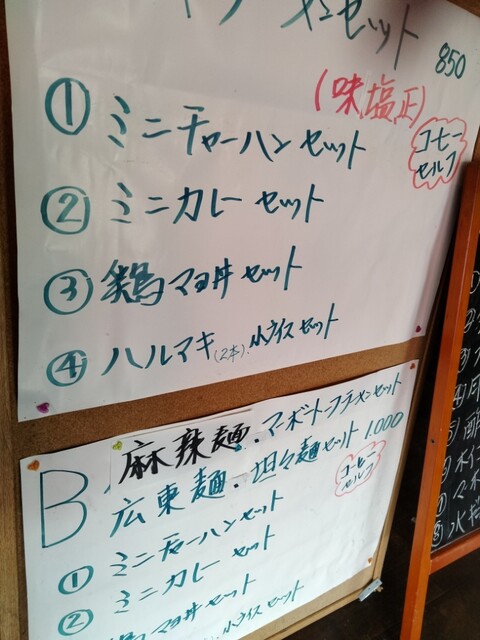 メンセット 850
(味塩正)
コーヒー
セルフ
① ミニチャーハンセット
② ミニカレーセット
③ 鶏マヨ丼セット
④ ハルマキ(2本).小ライスセット
B
麻辣麺.マーボートーフラーメンセット
広東麺.坦々麺セット 1000
コーヒー
セルフ
① ミニチャーハンセット
② ミニカレーセット
鶏マヨ丼セット
小ライスセット